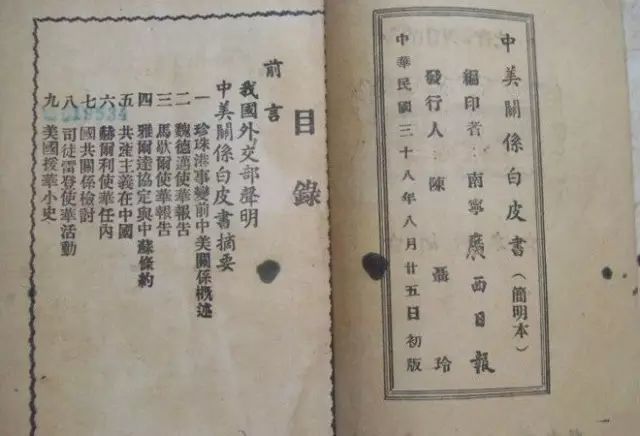 中美關係白皮書(簡明本)
編印者:南寧廣西日報
發行人:陳聶玲
中華民國三十八年八月廿五日初版
目錄
前言
我國外交部聲明
中美關係白皮書摘要
一 珍珠港事變前中美關係概述
二 魏德邁使華報告
三 馬歇爾使華報告
四 雅爾達協定與中蘇條約
五 共產主義在中國
六 赫爾利使華任內
七 國共關係檢討
八 司徒雷登使華活動
九 美國援華小史